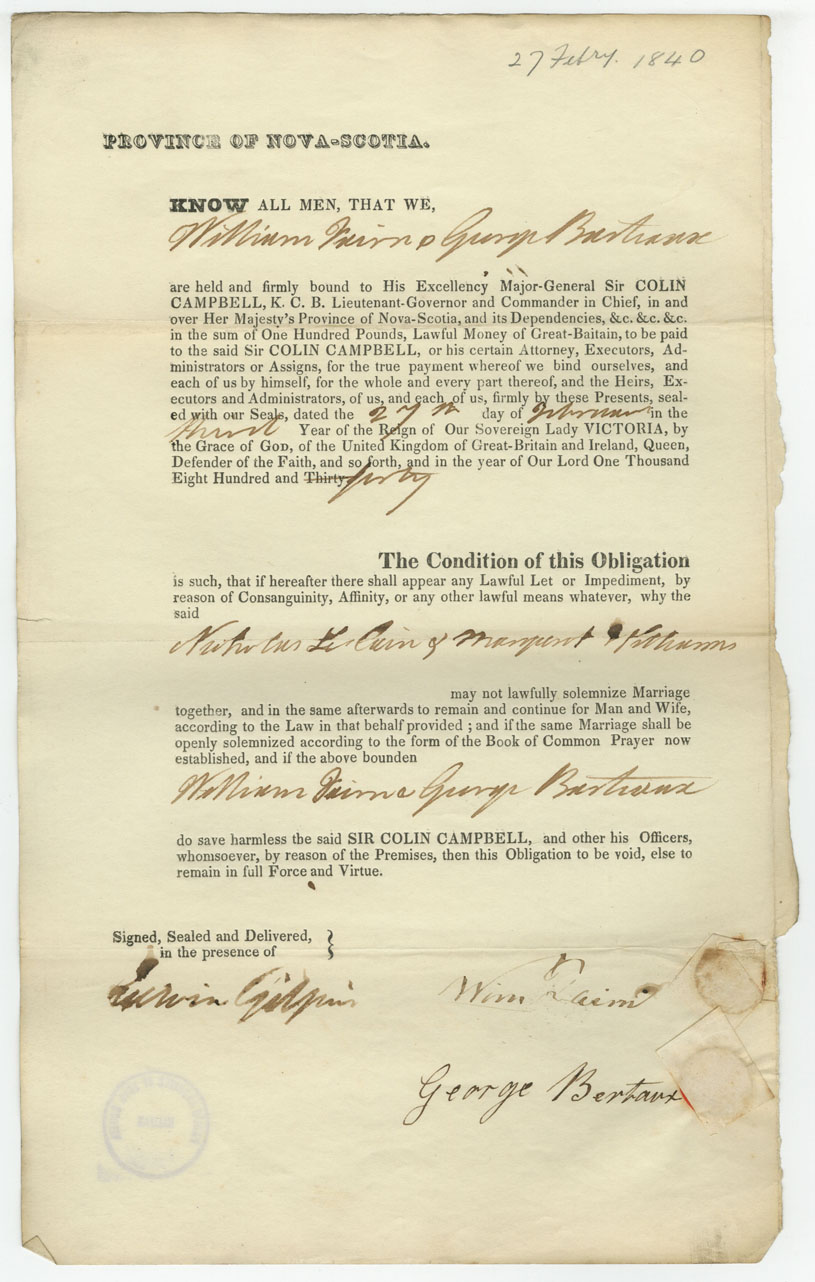 27 Febry. 1840
PROVINCE OF NOVA-SCOTIA.
KNOW ALL MEN, THAT WE,
William Fairn & George Barteaux
are held and firmly bound to His Excellency Major-General Sir COLIN
CAMPBELL, K. C. B. Lieutenant-Governor and Commander in Chief, in and
over Her Majesty's Province of Nova-Scotia, and its Dependencies, &c. &c. &c.
in the sum of One Hundred Pounds, Lawful Money of Great-Baitain, to be paid
to the said Sir COLIN CAMPBELL, or his certain Attorney, Executors, Ad-
ministrators or Assigns, for the true payment whereof we bind ourselves, and
each of us by himself, for the whole and every part thereof, and the Heirs, Ex-
ecutors and Administrators, of us, and each of us, firmly by these Presents, seal-
ed with our Seals, dated the 27th day of February in the
third Year of the Reign of Our Sovereign Lady VICTORIA, by
the Grace of GOD, of the United Kingdom of Great-Britain and Ireland, Queen,
Defender of the Faith, and so forth, and in the year of Our Lord One Thousand
Eight Hundred and Thirty forty
The Condition of this Obligation
is such, that if hereafter there shall appear any Lawful Let or Impediment, by
reason of Consanguinity, Affinity, or any other lawful means whatever, why the
said
Nicholas Le Cain & Margaret Williams
may not lawfully solemnize Marriage
together, and in the same afterwards to remain and continue for Man and Wife,
according to the Law in that behalf provided ; and if the same Marriage shall be
openly solemnized according to the form of the Book of Common Prayer now
established, and if the above bounden
William Fairn & George Barteaux
do save harmless the said SIR COLIN CAMPBELL, and other his Officers,
whomsoever, by reason of the Premises, then this Obligation to be void, else to
remain in full Force and Virtue.
Signed, Sealed and Delivered,
in the presence of
Edwin Gilpin
Wim Fairn
George Bertaux